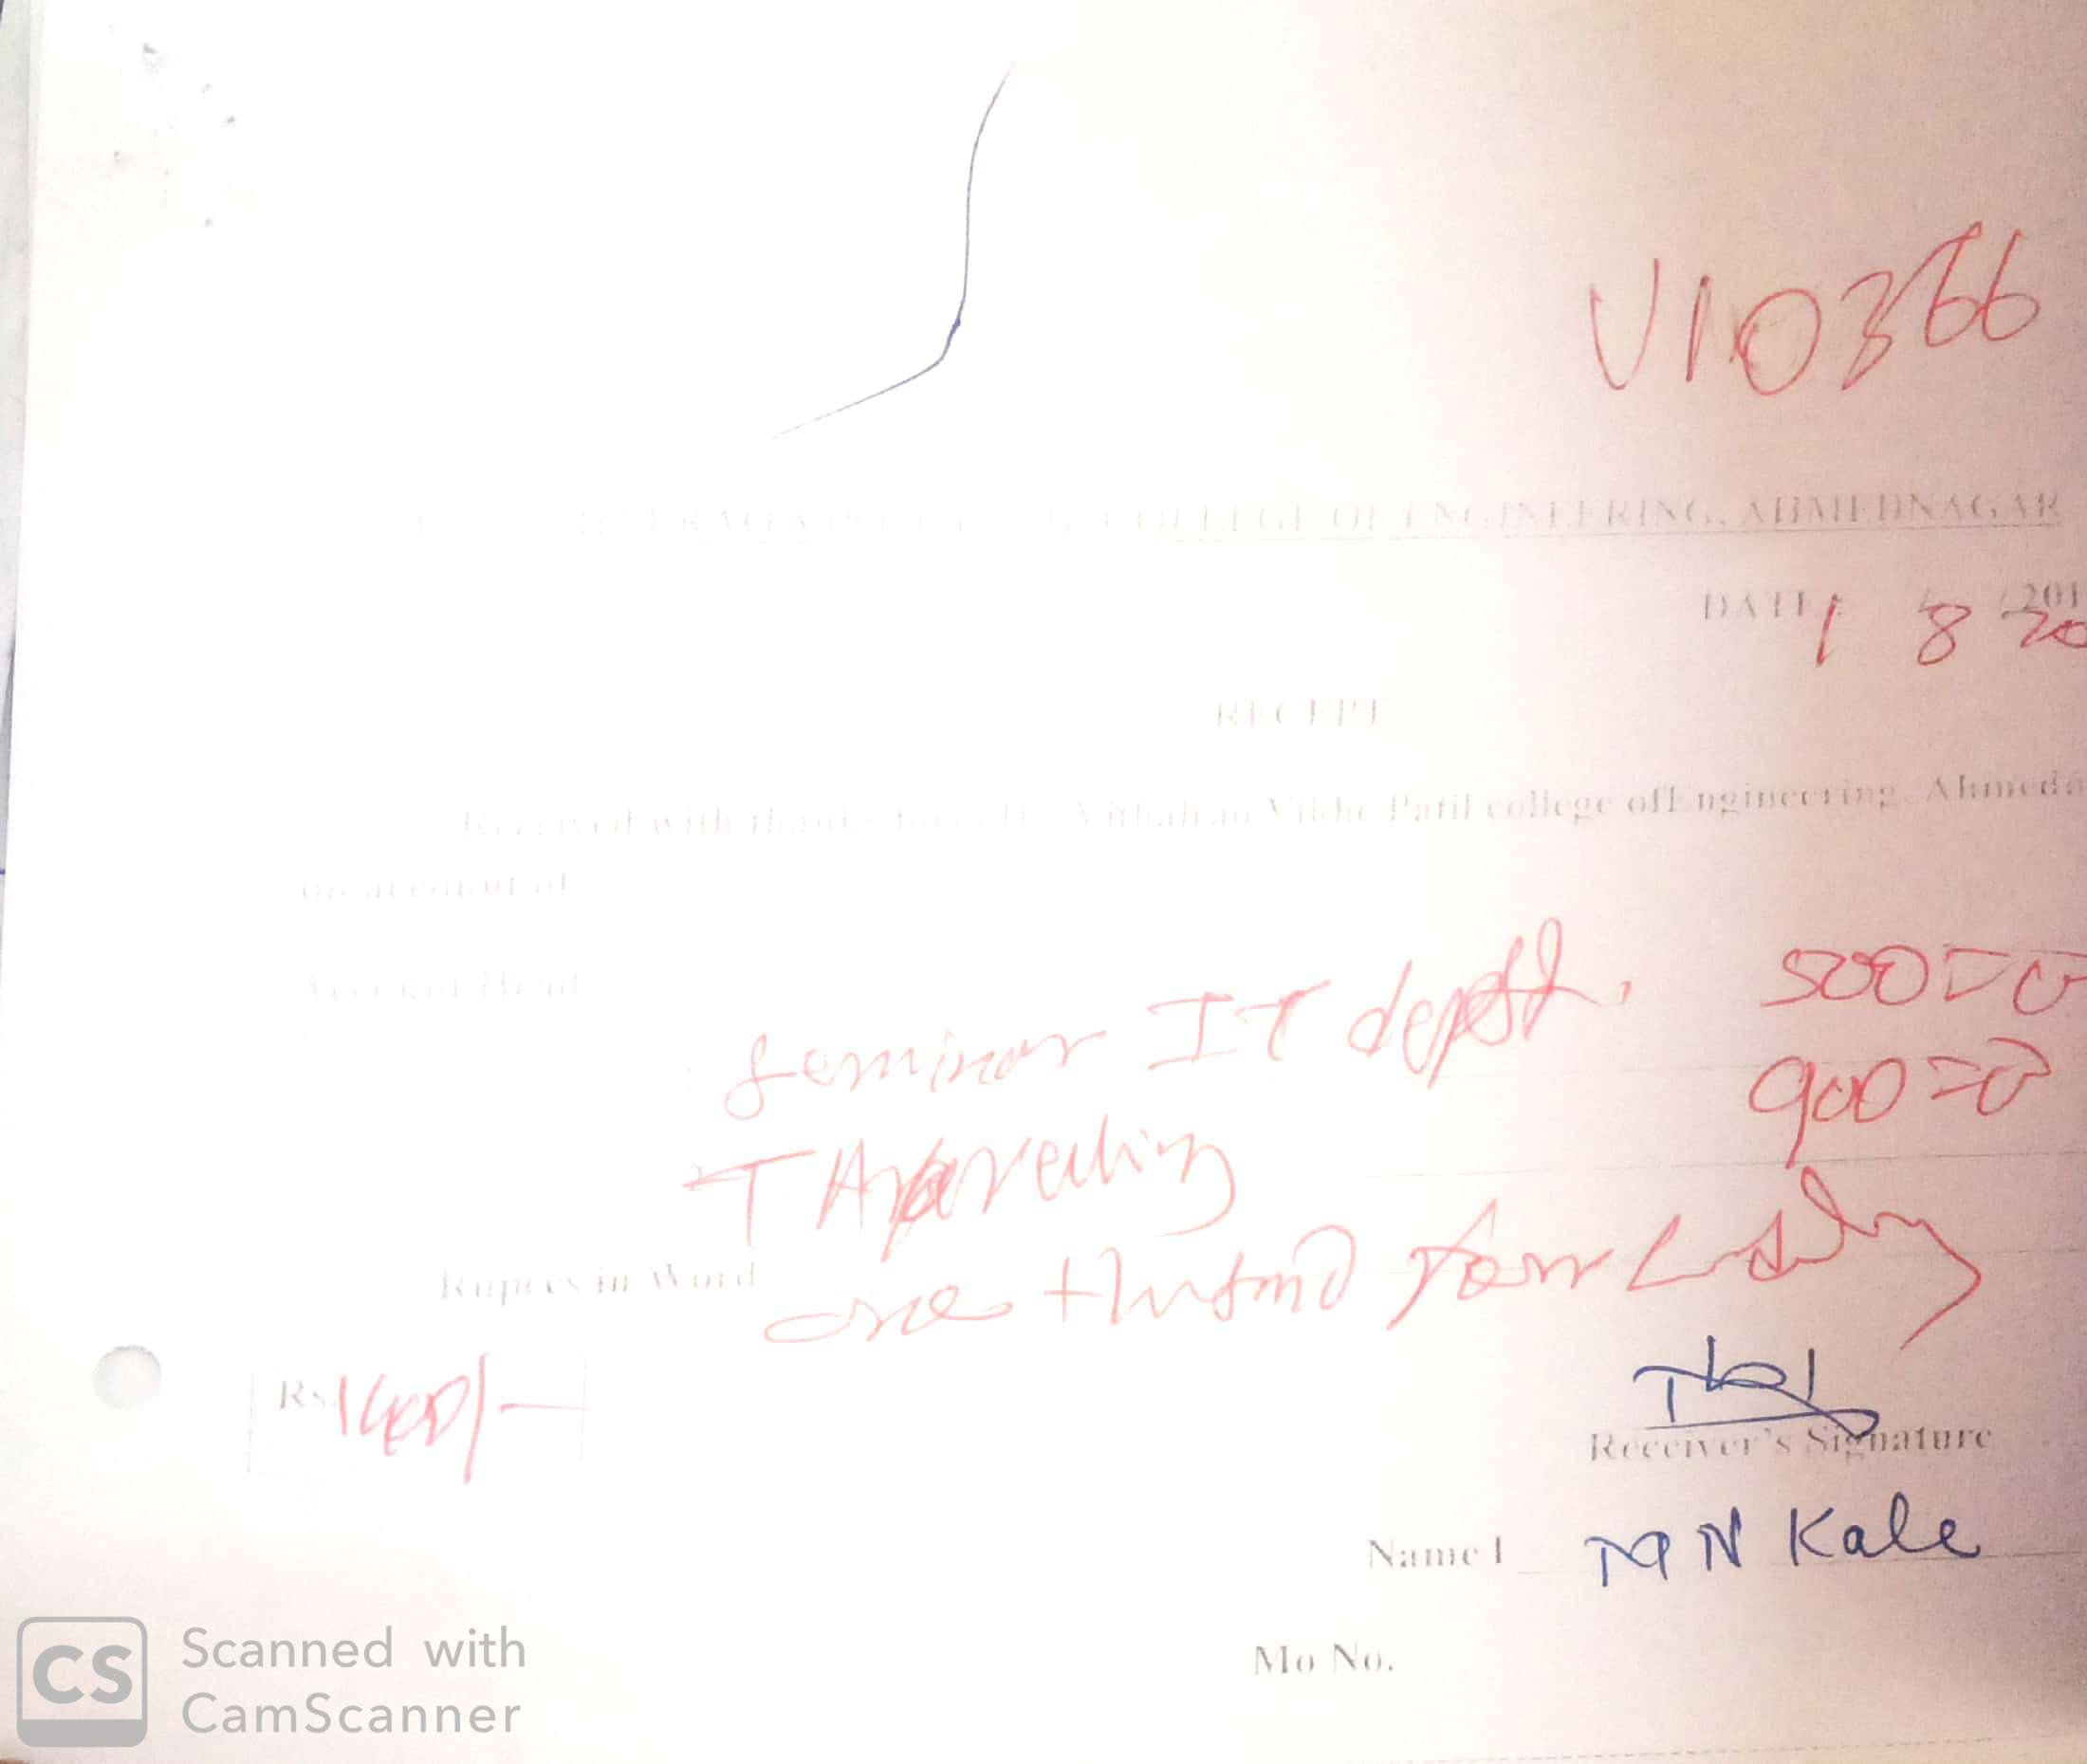 V10366
COLLEGE OF ENGINEERING, AHMEDNAGAR
DATE 1 8 20
/201
RECEPT
Received with thanks Vithalrao Vikhe Patil college of Engineering, Ahmedn
on account of
Account Head
seminar IT deptt. 500=0
Travelling 900=0
Rupees in Word one thousand four only
Rs. 1400/-
Receiver's Signature
Name M N Kale
Mo No.
CS Scanned with
CamScanner